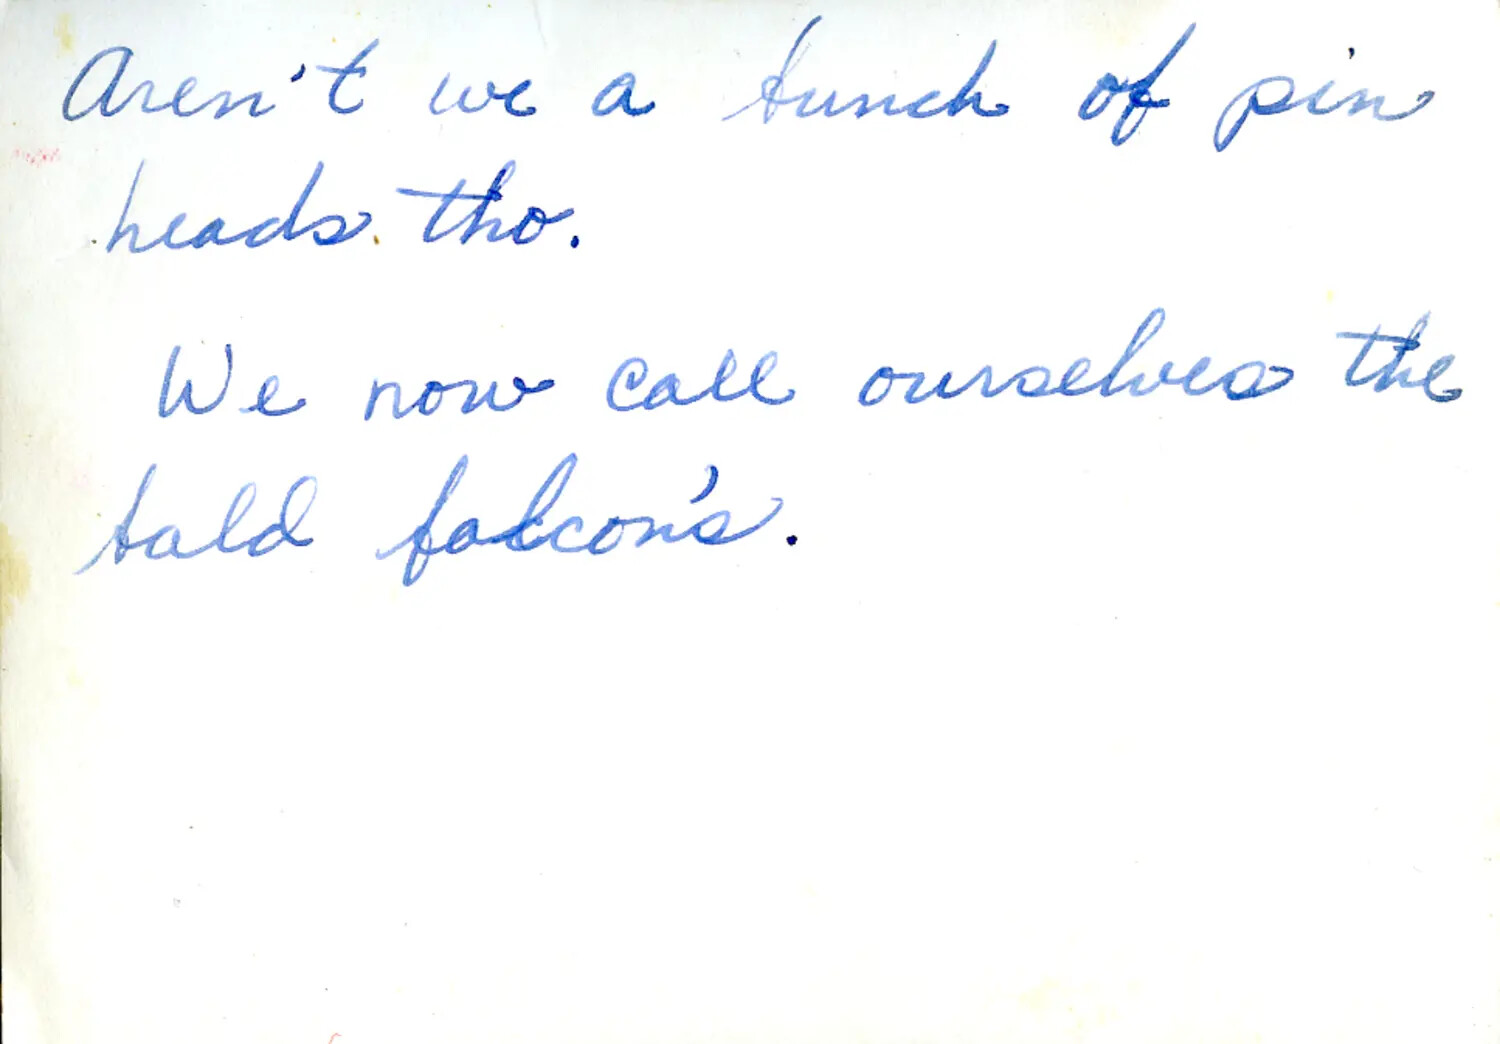 Aren't we a bunch of pin
heads tho.
We now call ourselves the
bald falcon's.